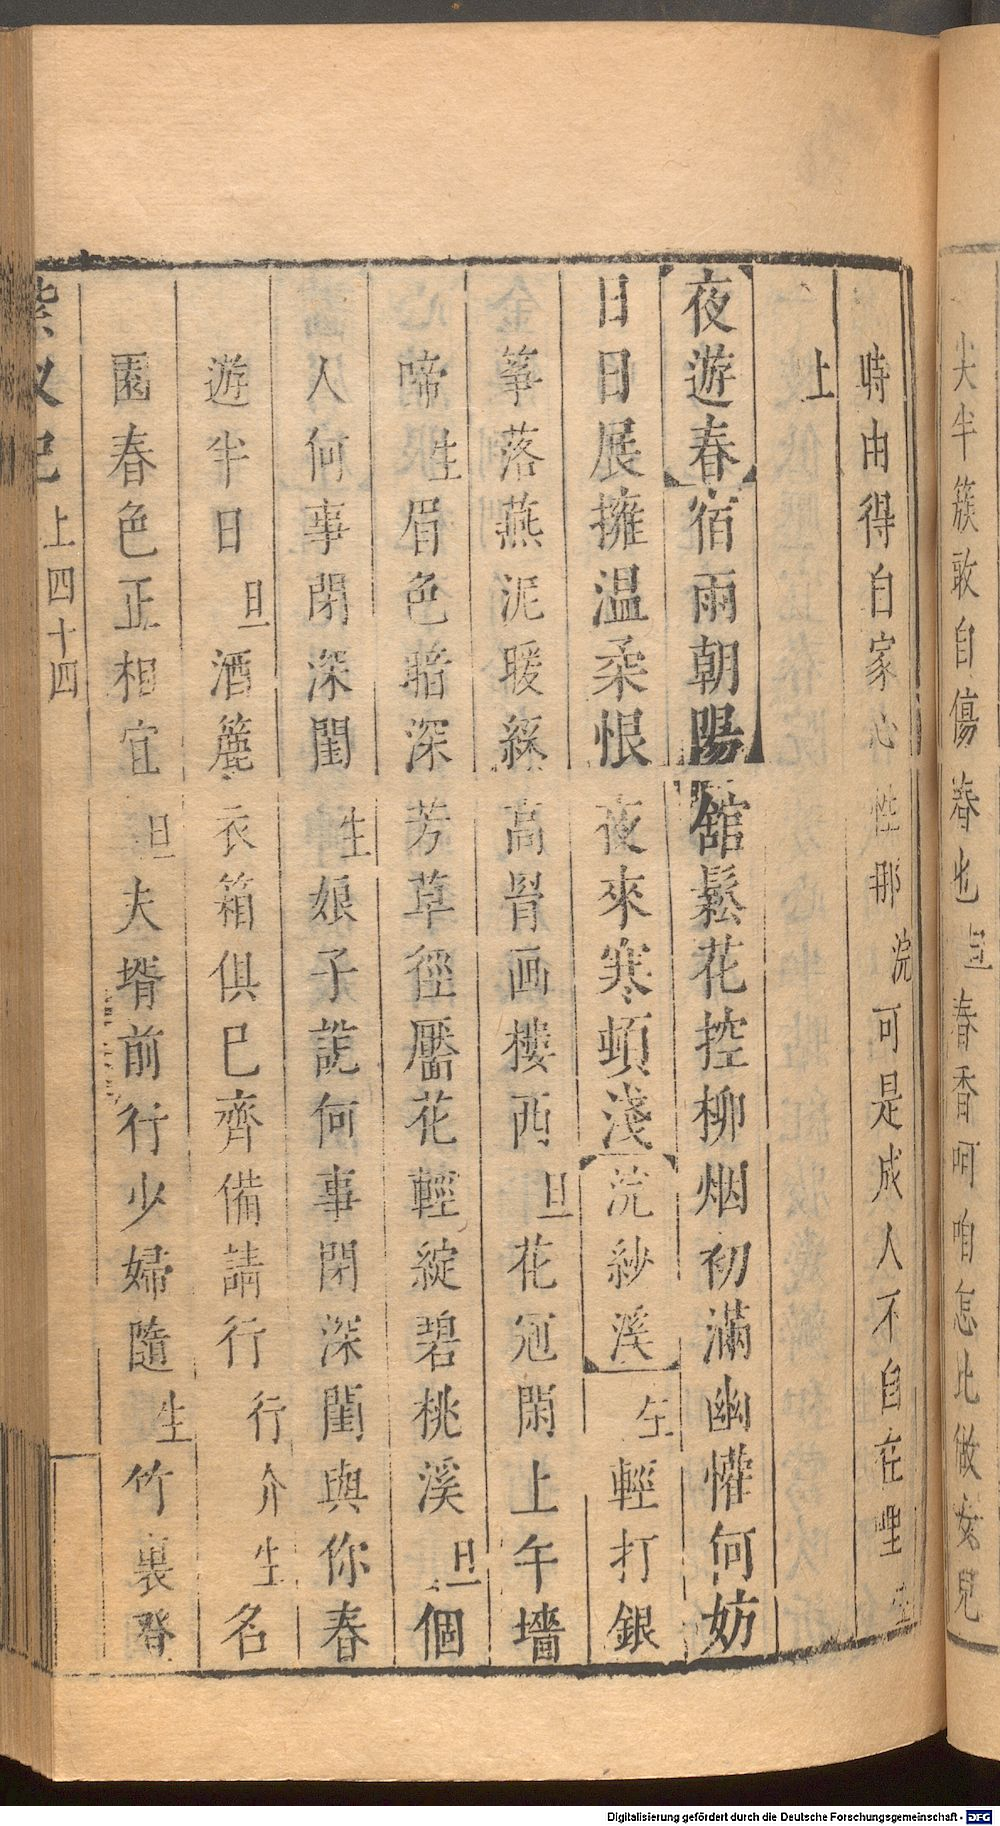 尖半簇敢自傷春也旦春香呵咱怎比做女兒
時由得自家心性那浣可是成人不自在哩生
上
夜遊春宿雨朝陽舘鬆花控柳烟初滿幽懽何妨
日日展擁温柔恨夜來寒頓淺浣紗溪生輕打銀
箏落燕泥暖絲高骨画樓西旦花冠閑上午墻
啼生眉色暗深芳草徑靨花輕綻碧桃溪旦個
人何事閉深閨生娘子說何事閉深閨與你春
遊半日旦酒簏衣箱俱已齊備請行行介生名
園春色正相宜旦夫壻前行少婦隨生竹裏登
紫釵記 上四十四
Digitalisierung gefördert durch die Deutsche Forschungsgemeinschaft - DFG